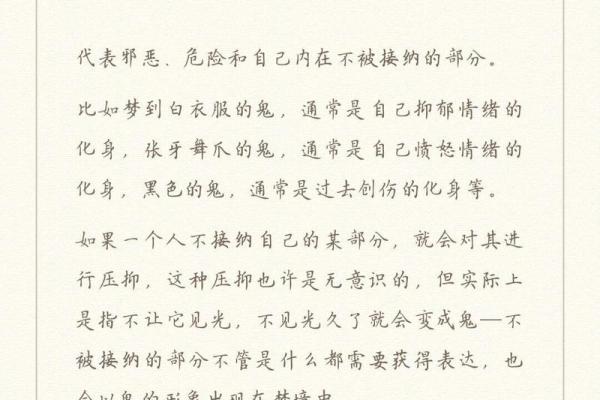 代表邪恶、危险和自己内在不被接纳的部分。
比如梦到白衣服的鬼，通常是自己抑郁情绪的
化身，张牙舞爪的鬼，通常是自己愤怒情绪的
化身，黑色的鬼，通常是过去创伤的化身等。
如果一个人不接纳自己的某部分，就会对其进
行压抑，这种压抑也许是无意识的，但实际上
是指不让它见光，不见光久了就会变成鬼—不
被接纳的部分不管是什么都需要获得表达，也
会以鬼的形象出现在梦境中